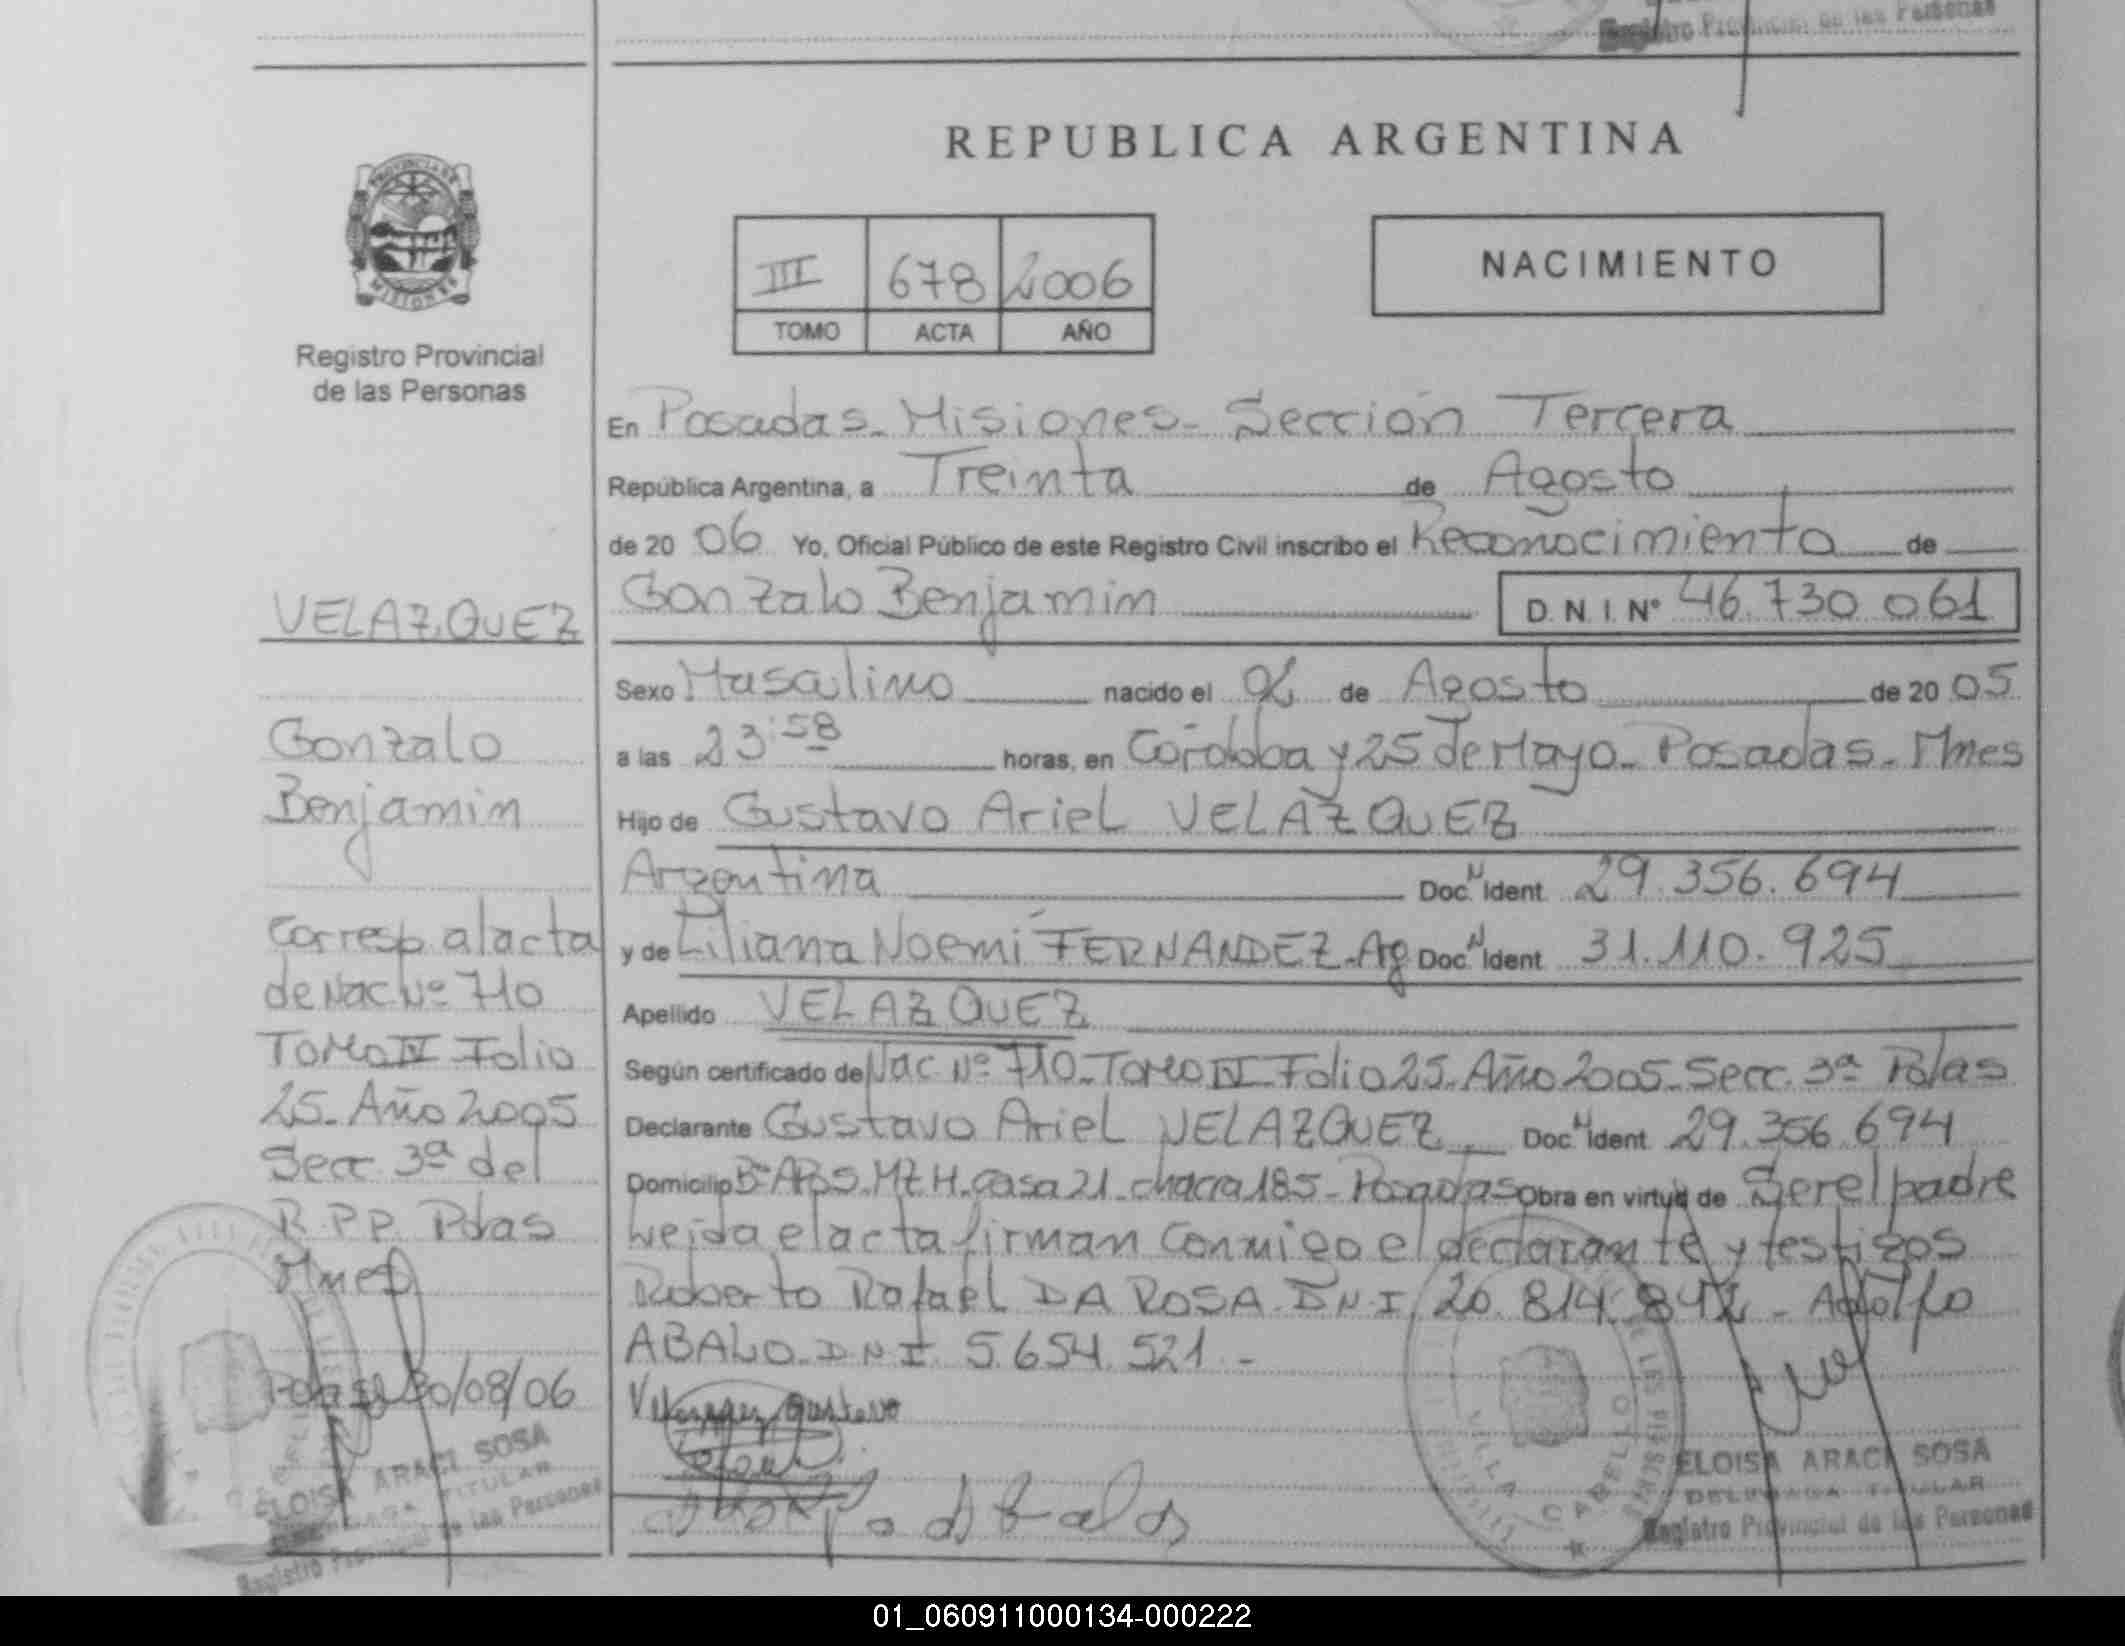 Registro Provincial de las Personas
REPUBLICA ARGENTINA
PROVINCIA DE
MISIONES
Registro Provincial
de las Personas
III 678 2006
TOMO ACTA AÑO
NACIMIENTO
VELAZQUEZ
Gonzalo
Benjamin
Corresp. al acta
de Nac. Nº 710
Tomo IV Folio
25. Año 2005
Secc. 3ª del
R.P.P. Pdas
Mnes
Pdas 30/08/06
ELOISA ARACI SOSA
DELEGADA TITULAR
Registro Provincial de las Personas
En Posadas. Misiones. Sección Tercera
República Argentina, a Treinta de Agosto
de 20 06 Yo, Oficial Público de este Registro Civil inscribo el Reconocimiento de
Gonzalo Benjamin D.N.I. Nº 46.730.061
Sexo Masculino nacido el de Agosto de 20 05
a las 23:58 horas, en Córdoba y 25 de Mayo. Posadas. Mnes
Hijo de Gustavo Ariel VELAZQUEZ
Argentina Doc. N Ident. 29.356.694
y de Liliana Noemí FERNANDEZ. Ag Doc. N Ident. 31.110.925
Apellido VELAZQUEZ
Según certificado de Nac Nº 710. Tomo IV. Folio 25. Año 2005. Secc. 3ª Pdas
Declarante Gustavo Ariel VELAZQUEZ Doc. N Ident. 29.356.694
Domicilio Bº APS. MZ H. Casa 21. chacra 185. Posadas Obra en virtud de Ser el padre
Leida el acta firman conmigo el declarante y testigos
Roberto Rafael DA ROSA. D.N.I. 20.814.842 - Adolfo
ABALO. D.N.I. 5.654.521.-
Velazquez Gustavo
VILLA CABELLO
ELOISA ARACI SOSA
DELEGADA TITULAR
Registro Provincial de las Personas
01_060911000134-000222